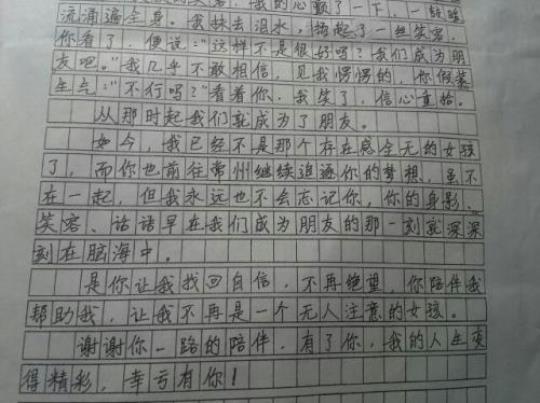 的笑容,我的心颤了一下,一股暖
流涌遍全身。我抹去泪水,扬起了一丝笑容,
你看了,便说:“这样不是很好吗?我们成为朋
友吧。”我几乎不敢相信,见我愣愣的,你假装
生气:“不行吗?”看着你,我笑了,信心重拾。
从那时起我们就成为了朋友。
如今,我已经不是那个存在感全无的女孩
了,而你也前往常州继续追逐你的梦想,虽不
在一起,但我永远也不会忘记你,你的身影、
笑容、话语早在我们成为朋友的那一刻就深深
刻在脑海中。
是你让我找回自信,不再绝望,你陪伴我
帮助我,让我不再是一个无人注意的女孩。
谢谢你一路的陪伴,有了你,我的人生变
得精彩,幸亏有你!